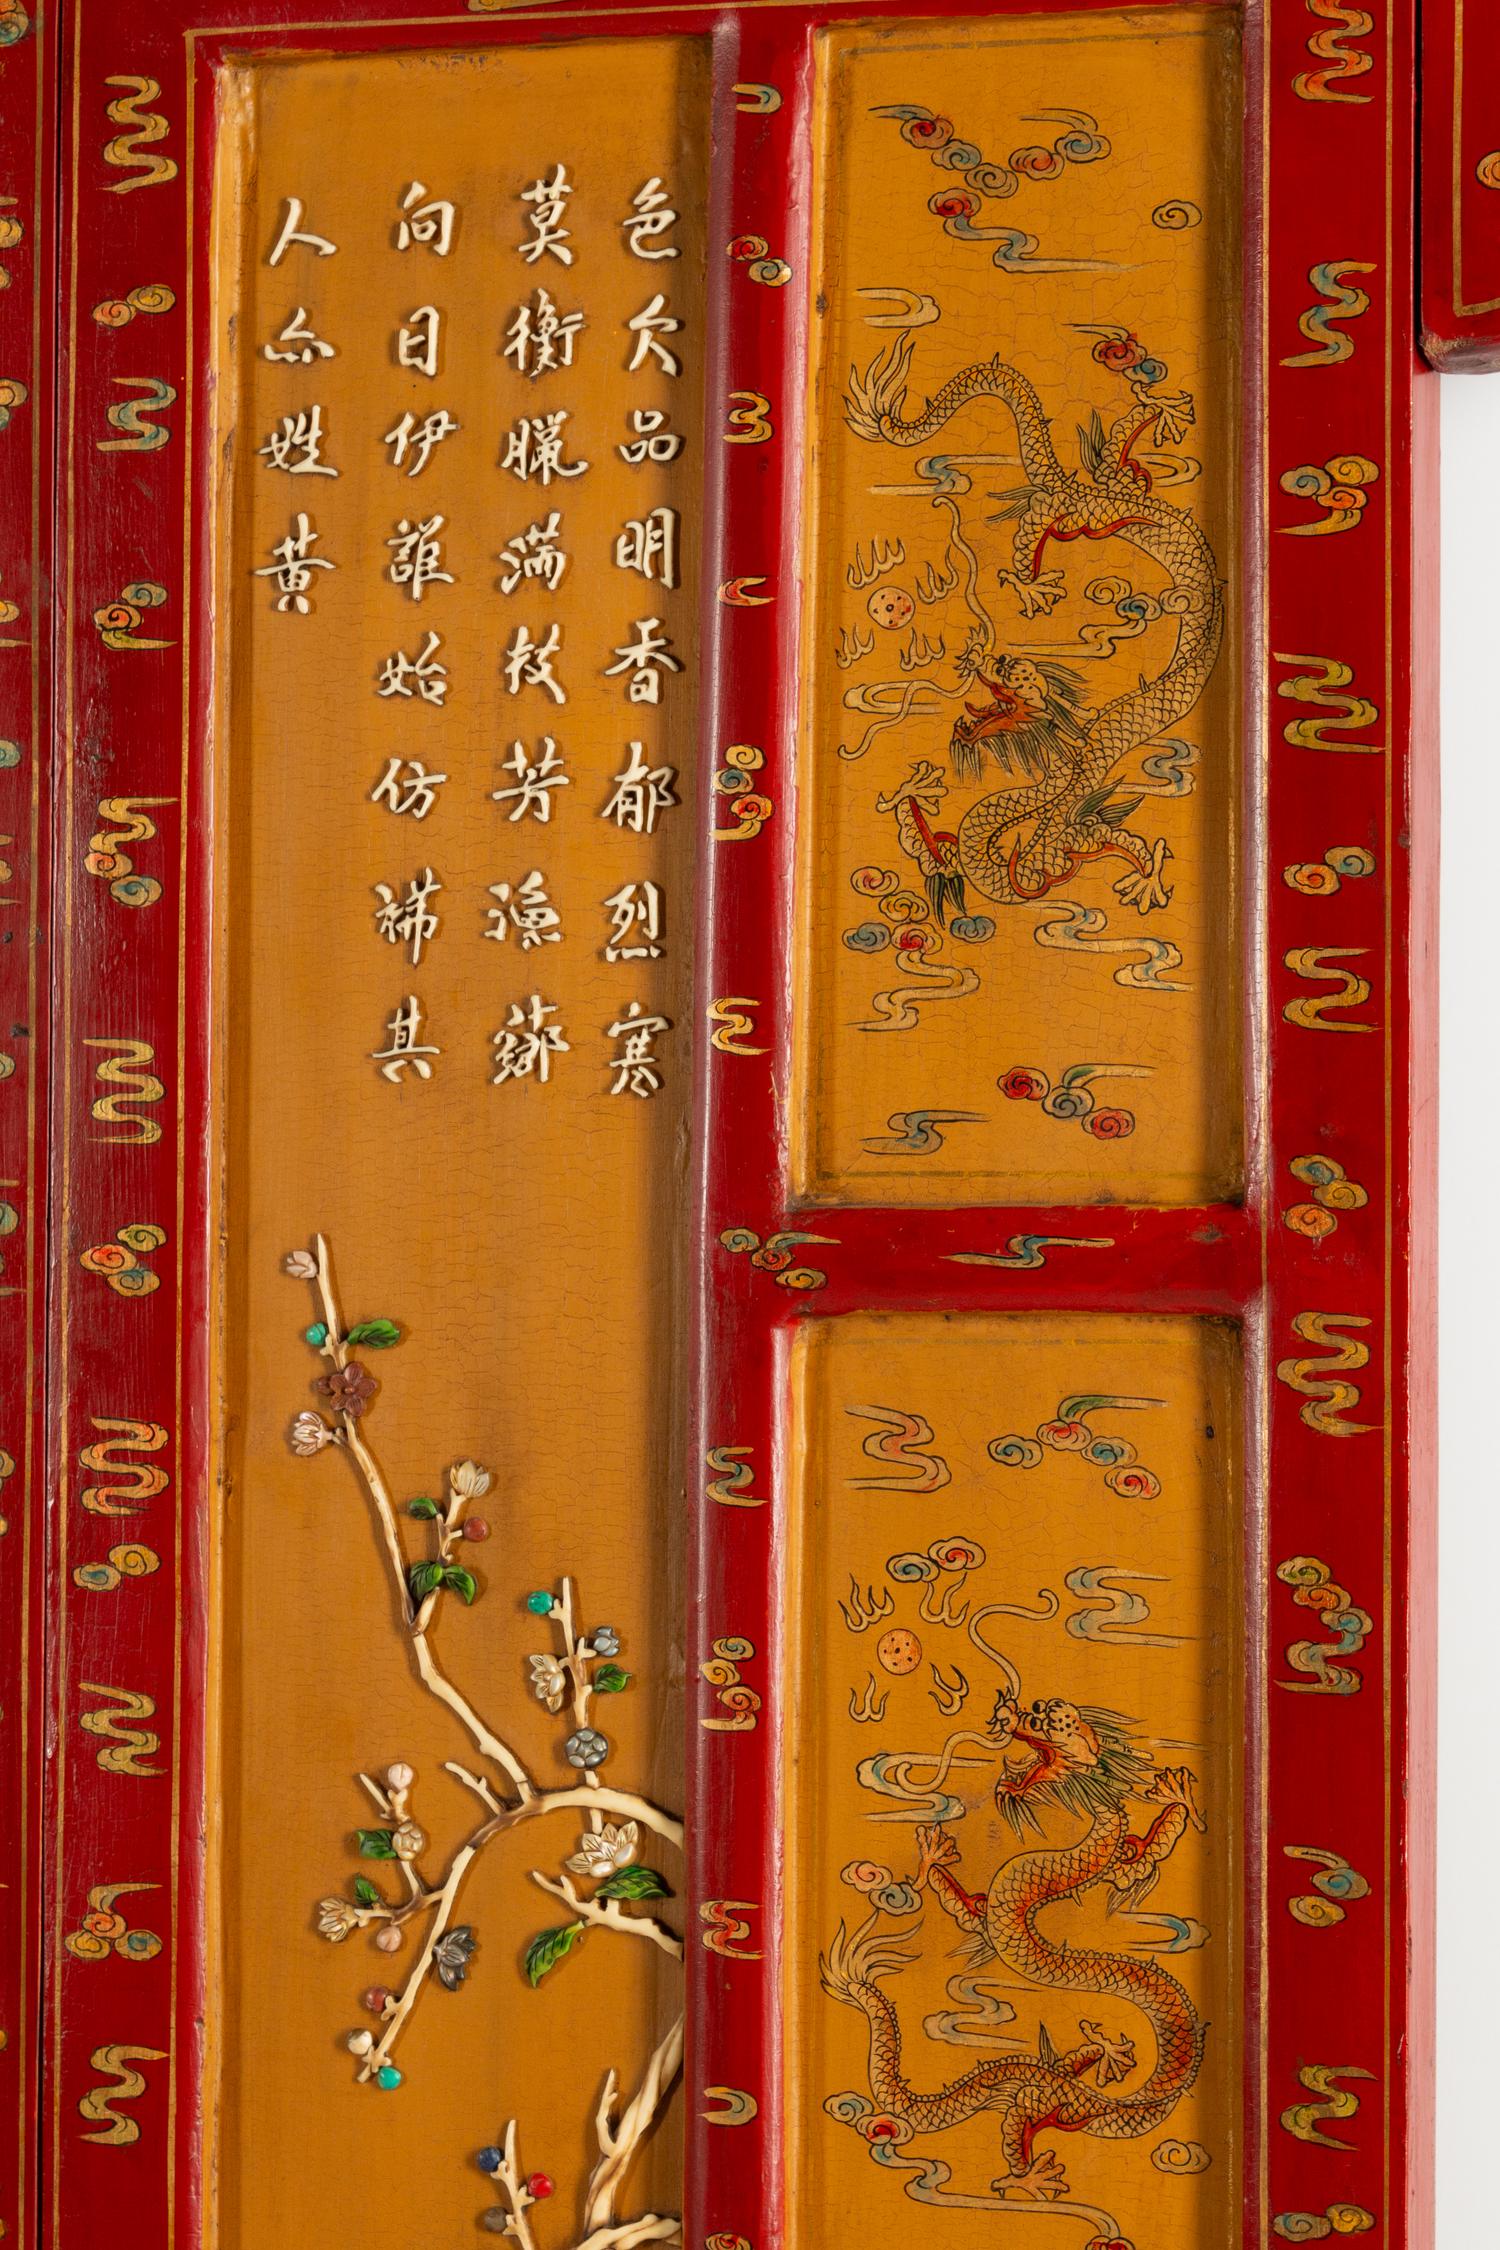 色欠品明香郁烈寒
莫衡臘满技芳漁薌
向日伊誰始仿其
人亦姓黄